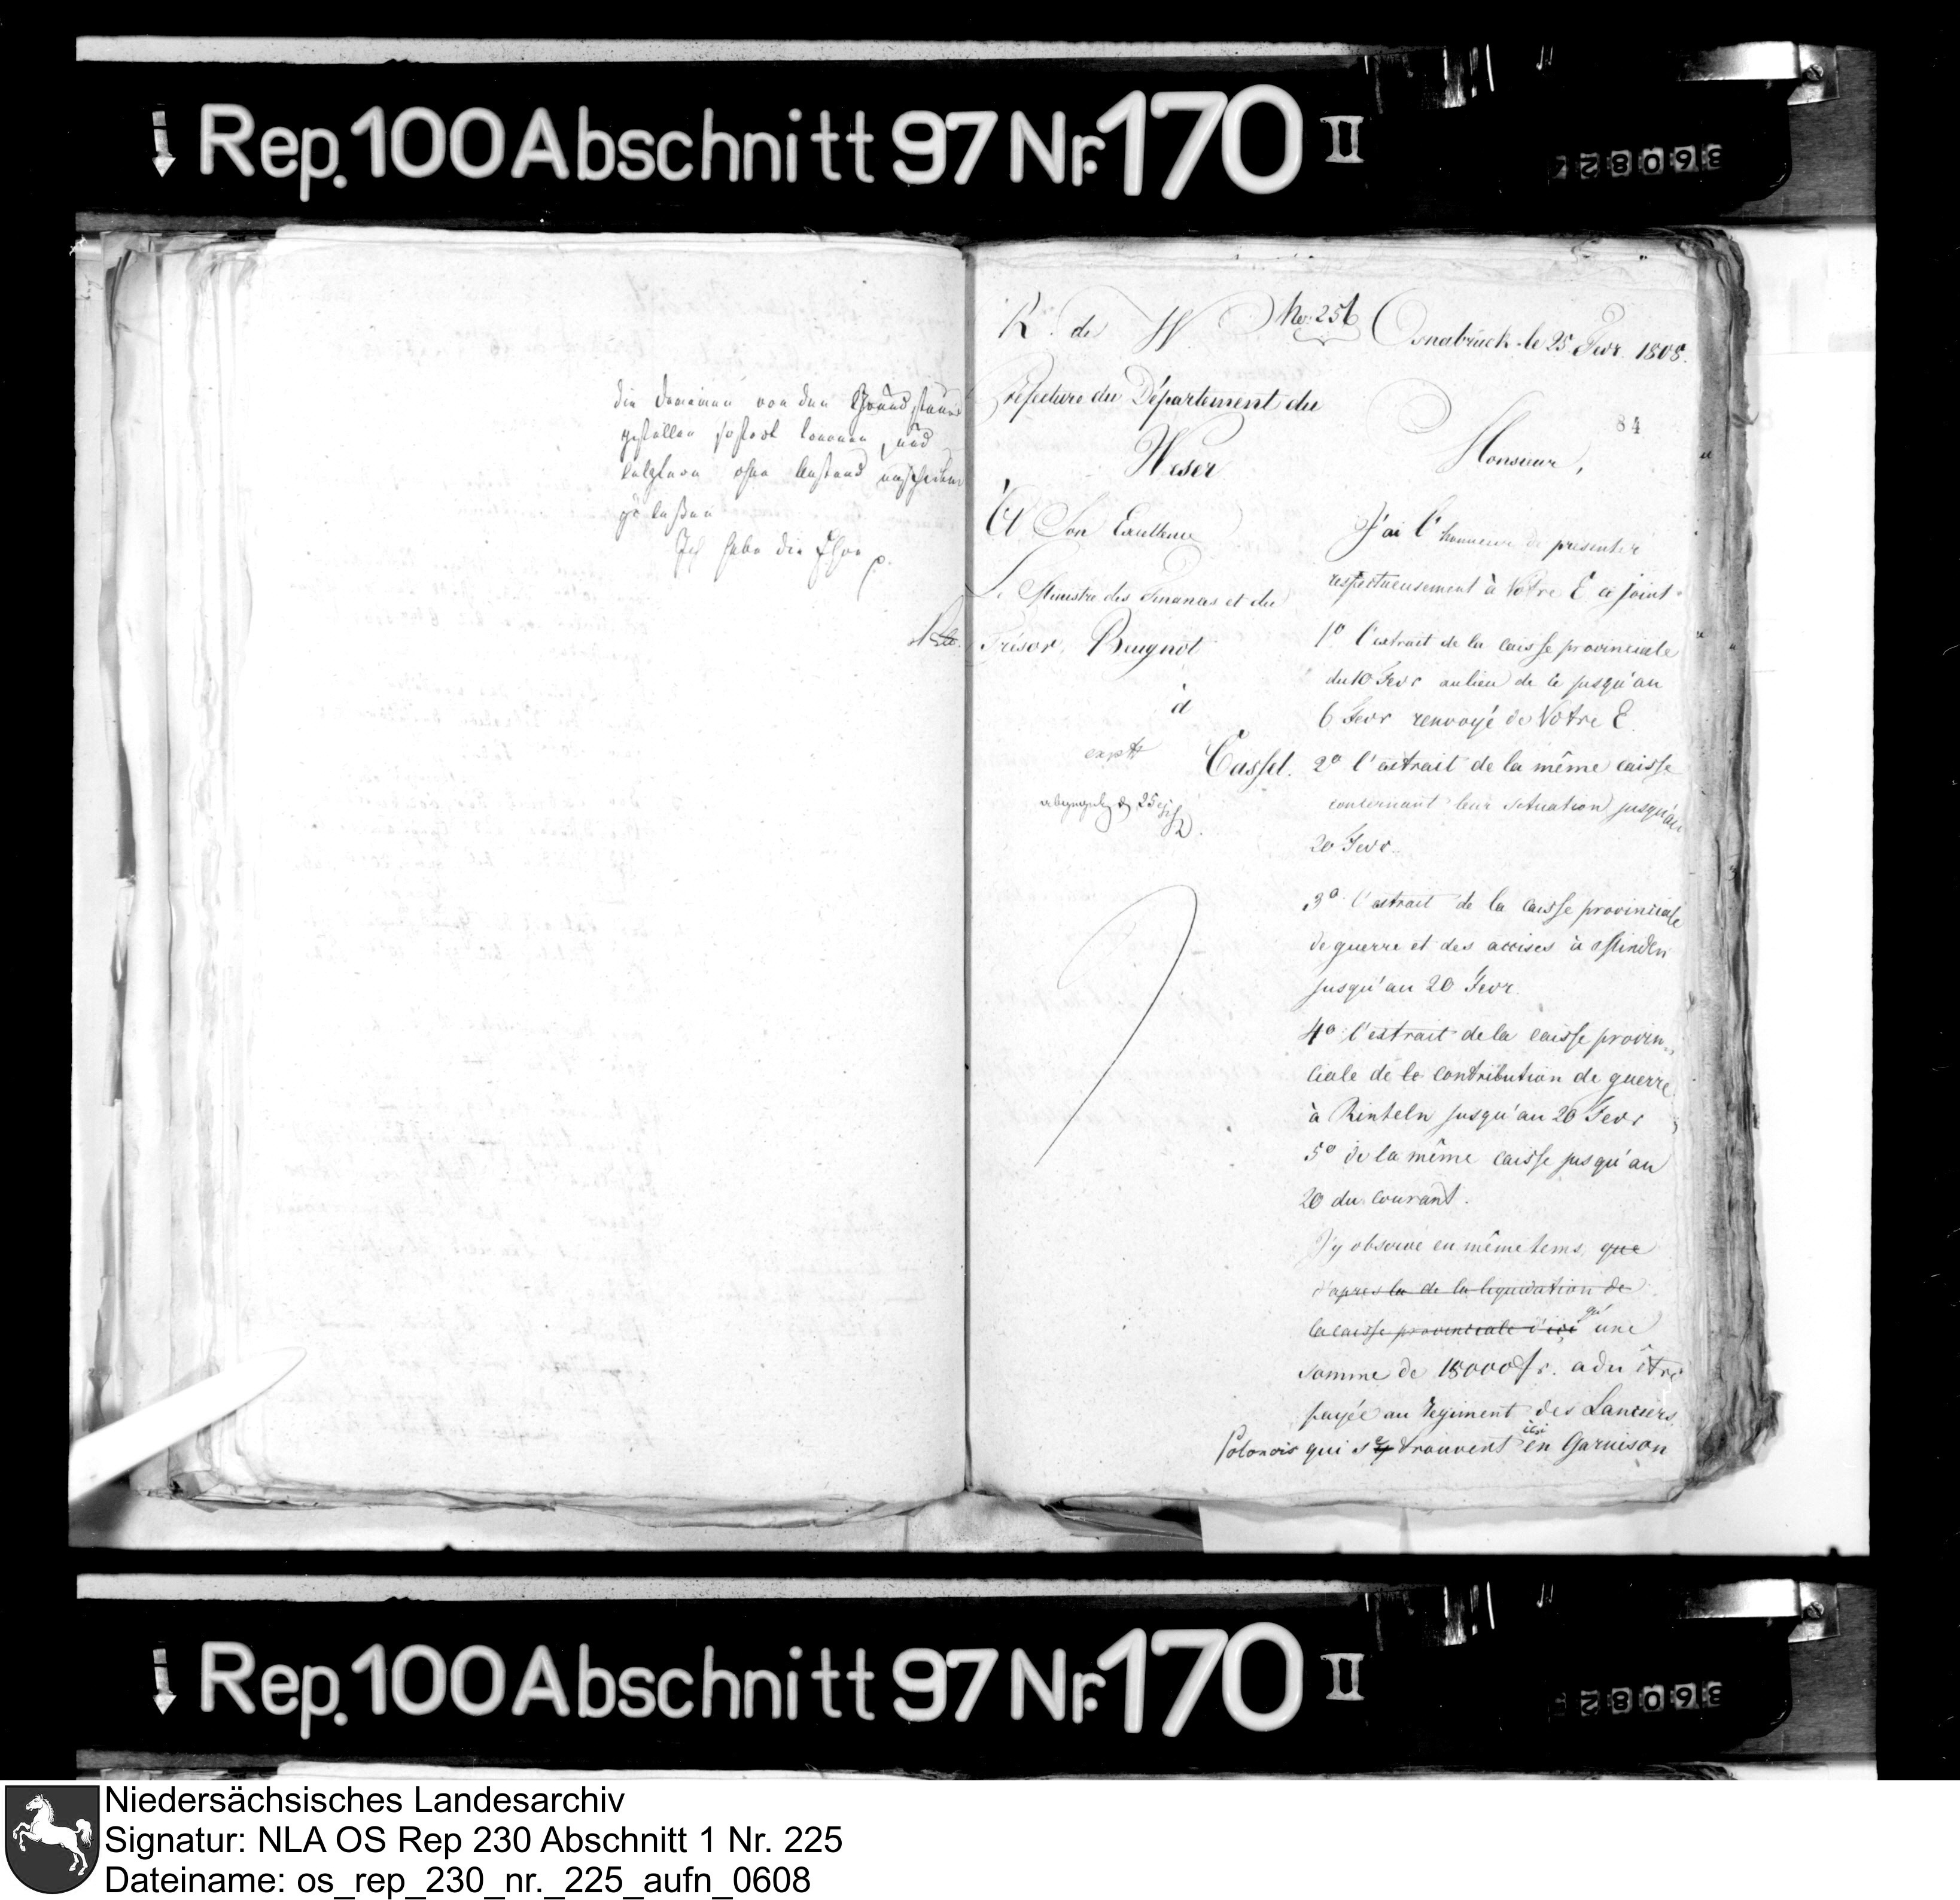 Rep. 100 Abschnitt 97 Nr. 170 II
die Domainen von den Grundsteuer
gefällen sofort trennen, und
letztere ohne Anstand verschicken
zu laßen
Ich habe die Ehre p.
K. de W.
No: 256
Osnabrück le 25 Fevr. 1808.
Prefecture du Département du
Weser
84
Monsieur,
A Son Excellence
Le Ministre des Finances et du
Trésor, Beugnot
à
Cassel.
exp
abgegeben d 25
J'ai l'honneur de presenter
respectueusement à Votre E ci joint
1º l'extrait de la caisse provinciale
du 10 Fevr au lieu de ce jusqu'au
6 Fevr renvoyé de Votre E.
2º l'extrait de la même caisse
concernant leur situation jusqu'au
20 Fevr.
3º l'extrait de la caisse provinciale
de guerre et des accises à Minden
jusqu'au 20 Fevr.
4º l'extrait de la caisse provin
ciale de le contribution de guerre
à Rinteln jusqu'au 20 Fevr
5º de la même caisse jusqu'au
20 du courant.
J'y observe en même tems, que
d'apres la de la liquidation de
la caisse provinciale d'ici qu' une
somme de 15000 fr. a du être
payée au Regiment des Lanciers
Polonois qui se trouvent ici en Garnison
Rep. 100 Abschnitt 97 Nr. 170 II
Niedersächsisches Landesarchiv
Signatur: NLA OS Rep 230 Abschnitt 1 Nr. 225
Dateiname: os_rep_230_nr._225_aufn_0608